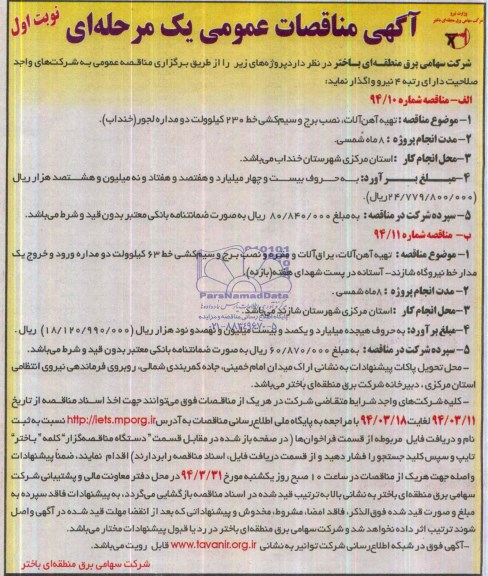 وزارت نیرو
شرکت سهامی برق منطقه‌ای باختر
نوبت اول
آگهی مناقصات عمومی یک مرحله‌ای
شرکت سهامی برق منطقه‌ای باختر در نظر دارد پروژه‌های زیر را از طریق برگزاری مناقصه عمومی به شرکت‌های واجد
صلاحیت دارای رتبه ۴ نیرو واگذار نماید:
الف- مناقصه شماره ۹۴/۱۰
۱- موضوع مناقصه: تهیه آهن‌آلات، نصب برج و سیم‌کشی خط ۲۳۰ کیلوولت دو مداره لجور(خنداب).
۲- مدت انجام پروژه: ۸ ماه شمسی.
۳- محل انجام کار: استان مرکزی شهرستان خنداب می‌باشد.
۴- مبلغ برآورد: به حروف بیست و چهار میلیارد و هفتصد و هفتاد و نه میلیون و هشتصد هزار ریال
(۲۴/۷۷۹/۸۰۰/۰۰۰ ریال).
۵- سپرده شرکت در مناقصه: به مبلغ ۸۰/۸۴۰/۰۰۰ ریال به صورت ضمانتنامه بانکی معتبر بدون قید و شرط می‌باشد.
ب- مناقصه شماره ۹۴/۱۱
۱- موضوع مناقصه: تهیه آهن‌آلات، یراق‌آلات و مقره و نصب برج و سیم‌کشی خط ۶۳ کیلوولت دو مداره ورود و خروج یک
مدار خط نیروگاه شازند- آستانه در پست شهدای هفته (بازنه).
۲- مدت انجام پروژه: ۸ ماه شمسی.
۳- محل انجام کار: استان مرکزی شهرستان شازند می‌باشد.
۴- مبلغ برآورد: به حروف هیجده میلیارد و یکصد و بیست میلیون و نهصد و نود هزار ریال (۱۸/۱۲۰/۹۹۰/۰۰۰) ریال.
۵- سپرده شرکت در مناقصه: به مبلغ ۶۰/۸۷۰/۰۰۰ ریال به صورت ضمانتنامه بانکی معتبر بدون قید و شرط می‌باشد.
- محل تحویل پاکات پیشنهادات به نشانی اراک میدان امام خمینی، جاده کمربندی شمالی، روبروی فرماندهی نیروی انتظامی
استان مرکزی، دبیرخانه شرکت برق منطقه‌ای باختر می‌باشد.
- کلیه شرکت‌های واجد شرایط متقاضی شرکت در هر یک از مناقصات فوق می‌توانند جهت اخذ اسناد مناقصه از تاریخ
۹۴/۰۳/۱۱ لغایت ۹۴/۰۳/۱۸ با مراجعه به پایگاه ملی اطلاع‌رسانی مناقصات به آدرس http://iets.mporg.ir نسبت به ثبت
نام و دریافت فایل مربوطه از قسمت فراخوان‌ها (در صفحه باز شده در مقابل قسمت "دستگاه مناقصه‌گزار" کلمه "باختر"
تایپ و سپس کلید جستجو را فشار دهید و از قسمت دریافت فایل، اسناد مناقصه را بردارند) اقدام نمایند، ضمناً پیشنهادات
واصله جهت هر یک از مناقصات در ساعت ۱۰ صبح روز یکشنبه مورخ ۹۴/۳/۳۱ در محل دفتر معاونت مالی و پشتیبانی شرکت
سهامی برق منطقه‌ای باختر به نشانی بالا به ترتیب قید شده در اسناد مناقصه بازگشایی می‌گردد، به پیشنهادات فاقد سپرده به
مبلغ و صورت قید شده فوق‌الذکر، فاقد امضا، مشروط، مخدوش و پیشنهاداتی که بعد از انقضا مهلت قید شده در آگهی واصل
شوند ترتیب اثر داده نخواهد شد و شرکت سهامی برق منطقه‌ای باختر در رد یا قبول پیشنهادات مختار می‌باشد.
- آگهی فوق در شبکه اطلاع‌رسانی شرکت توانیر به نشانی www.tavanir.org.ir قابل رویت می‌باشد.
شرکت سهامی برق منطقه‌ای باختر
ParsNamadData
پایگاه اطلاع رسانی مناقصه و مزایده
۰۲۱-۸۸۳۴۹۶۷۰-۵